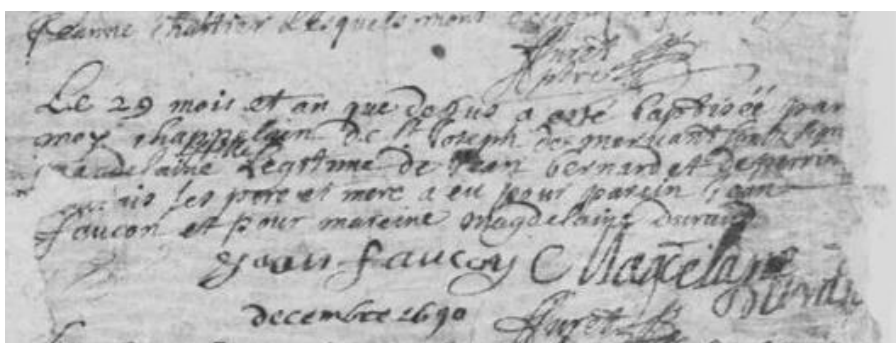 Jeanne Chartier Lesquels mont
Huret
pbre
Le 29 mois et an que dessus a esté baptiséé par
moy chappelain de st Joseph desservant soub signe
fille
magdelaine Legitime de Jean bernard et de perrin
ses pere et mere a eu pour parein jean
faucon et pour mareine magdelaine durand
jean faucon Magdelaine
durand
decembre 1690
Huret